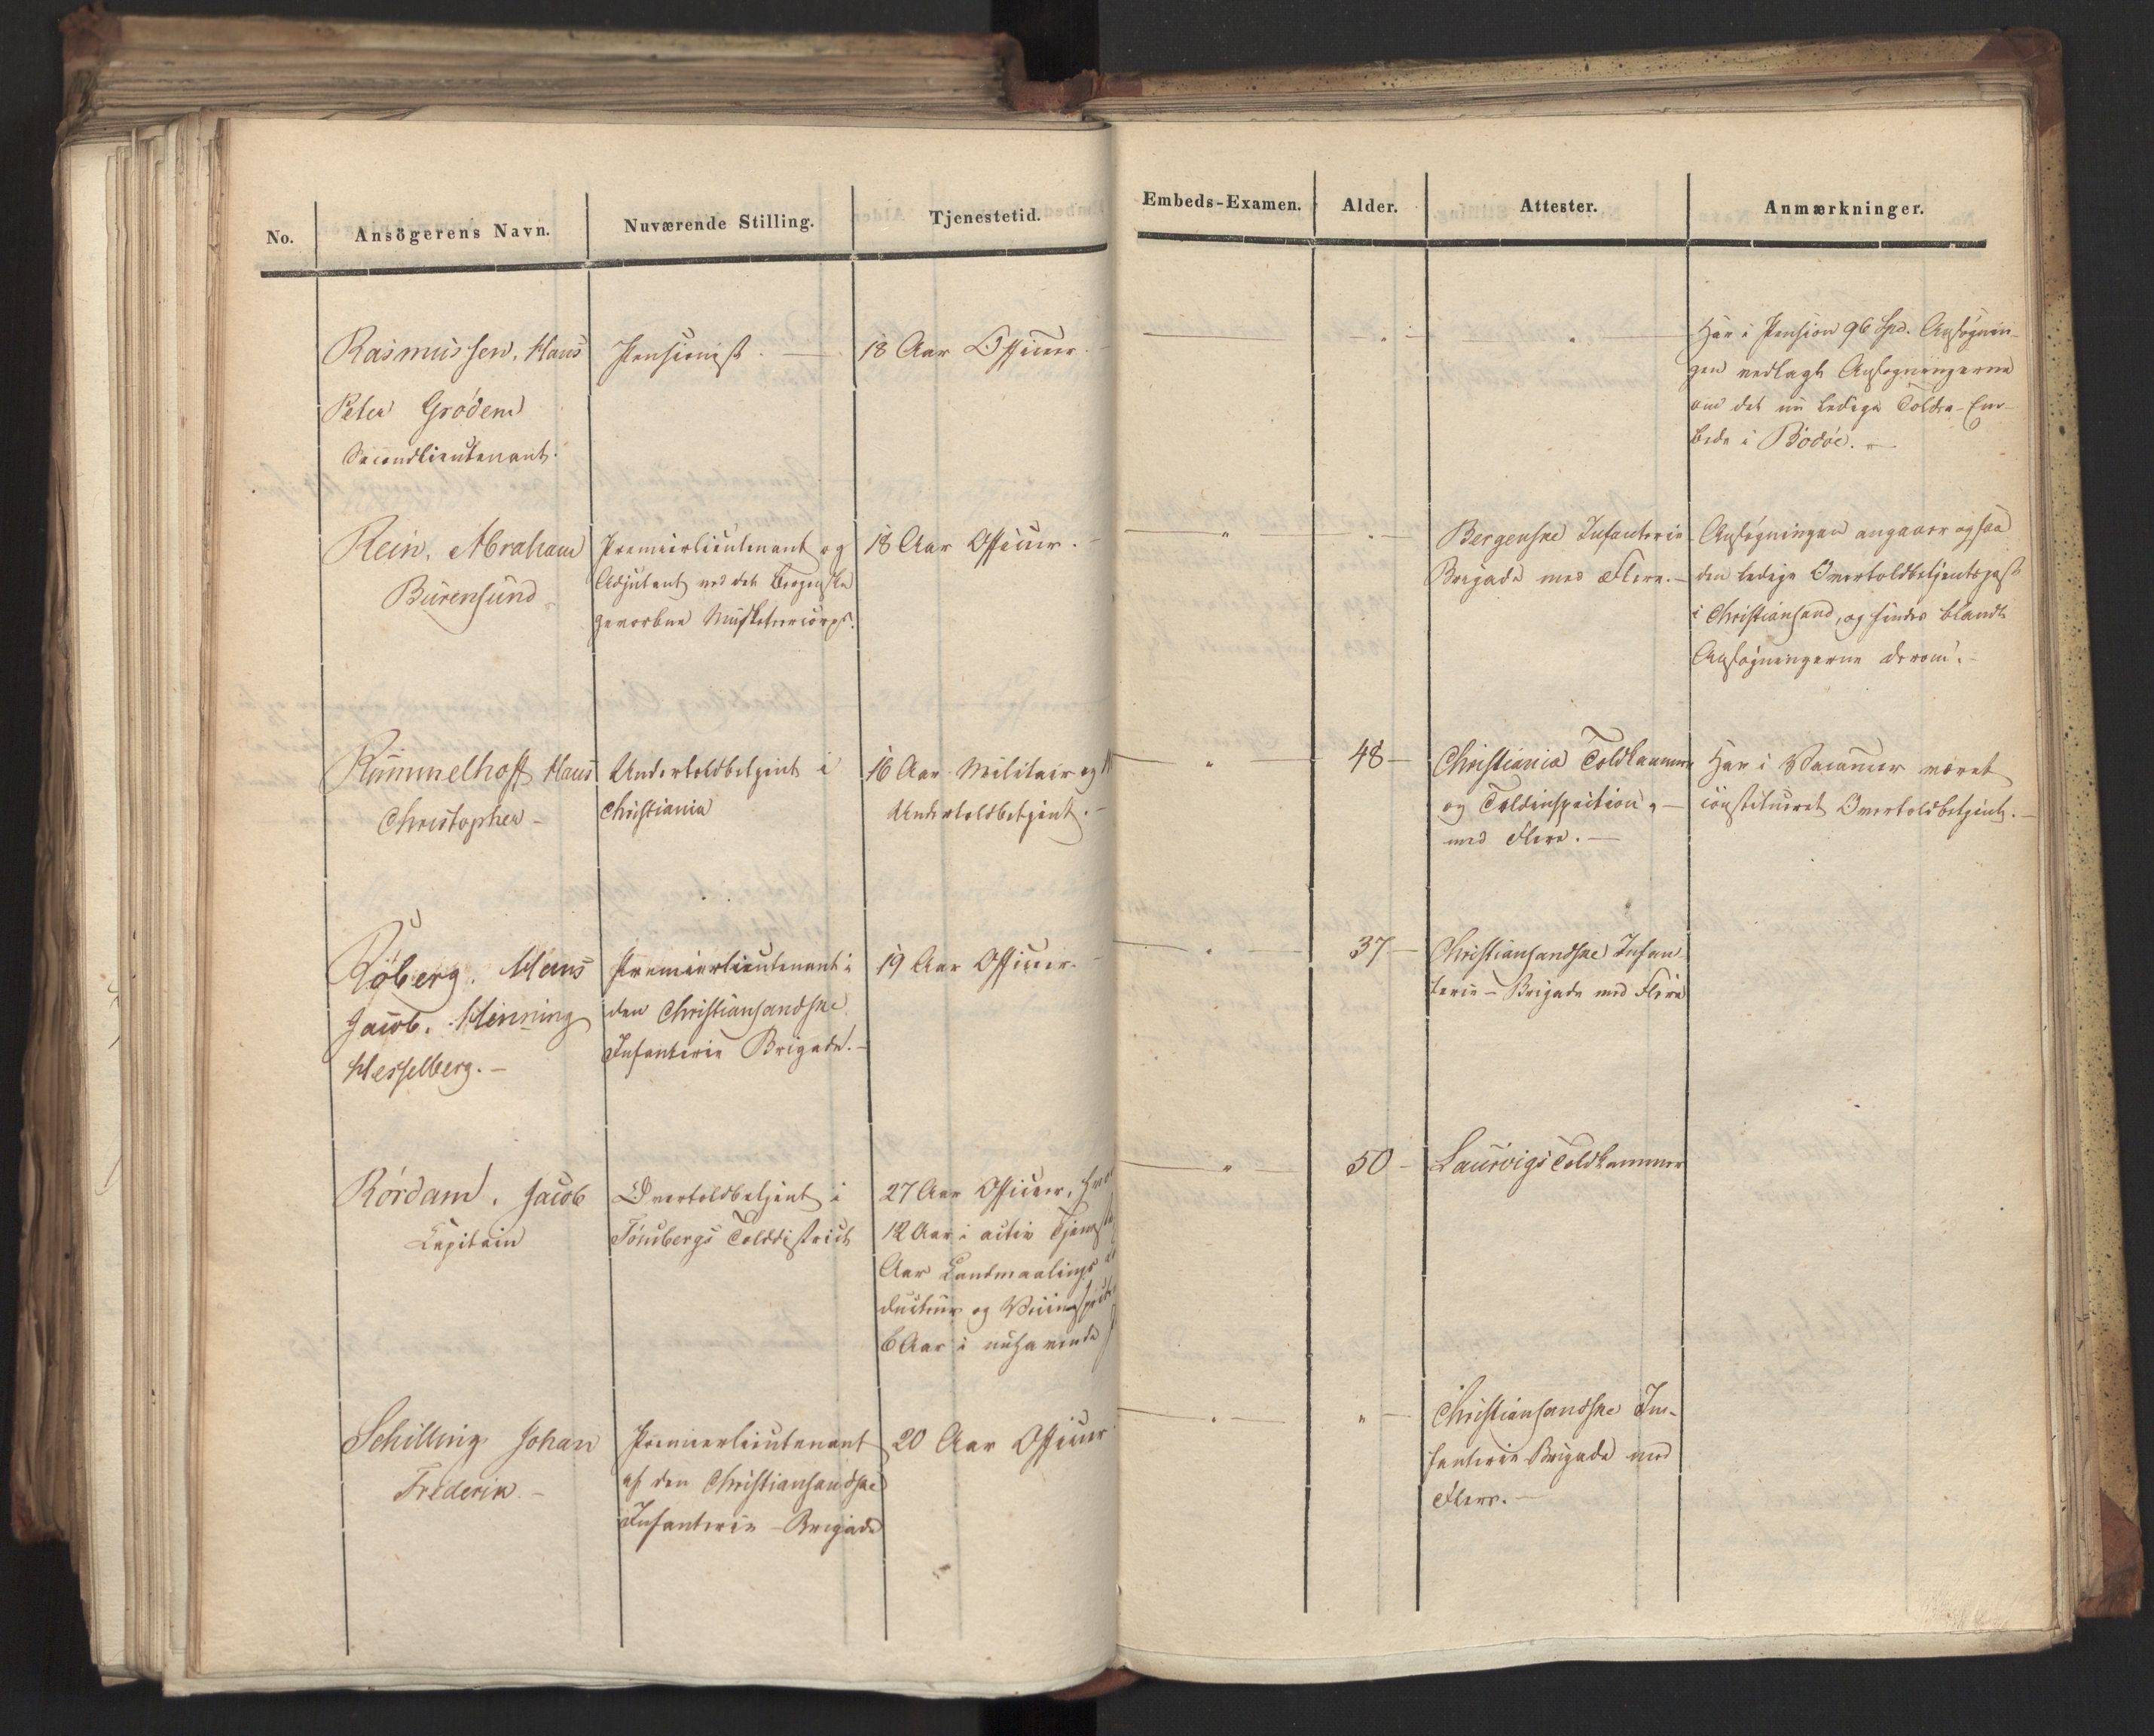 No.
Ansögerens Navn.
Nuværende Stilling.
Tjenestetid.
Embeds-Examen.
Alder.
Attester.
Anmærkninger.
Rasmussen, Hans
Peter Gröden
Secondlieutenant.
Pensionist. —
18 Aar Officier.
Har i Pension 96 Spd. Ansøgnin-
gen vedlagt Ansøgningerne
om det nu ledige Told- Em-
bede i Bodöe. —
Rein, Abraham
Burensund
Premierlieutenant og
Adjutant ved det Bergenske
gevorbne Musketeercorps.
18 Aar Officier. —
Bergenske Infanterie
Brigade med Flere. —
Ansøgningen angaaer ogsaa
den ledige Overtoldbetjentspost
i Christiansand, og findes blandt
Ansøgningerne derom. —
Rummelhoff Hans
Christopher —
Undertoldbetjent i
Christiania
16 Aar Militair og
Undertoldbetjent. —
48 —
Christiania Toldkammer
og Toldinspection, —
med Flere. —
Har i Vacancer været
constitueret Overtoldbetjent. —
Röberg, Hans
Jacob, Henning
Hesselberg. —
Premierlieutenant i
den Christiansandske
Infanterie Brigade. —
19 Aar Officier. —
37 —
Christiansandske Infan-
terie - Brigade med Flere
Rördam, Jacob
Capitain
Overtoldbetjent i
Tönsbergs Tolddistrict
27 Aar Officier,
12 Aar i activ
Aar Landmaalings
ducteur og
6 Aar i nuhavende
50 —
Laurvigs Toldkammer
Schilling Johan
Frederik —
Premierlieutenant
af den Christiansandske
Infanterie - Brigade
20 Aar Officier
Christiansandske In-
fanterie Brigade med
Flere. —